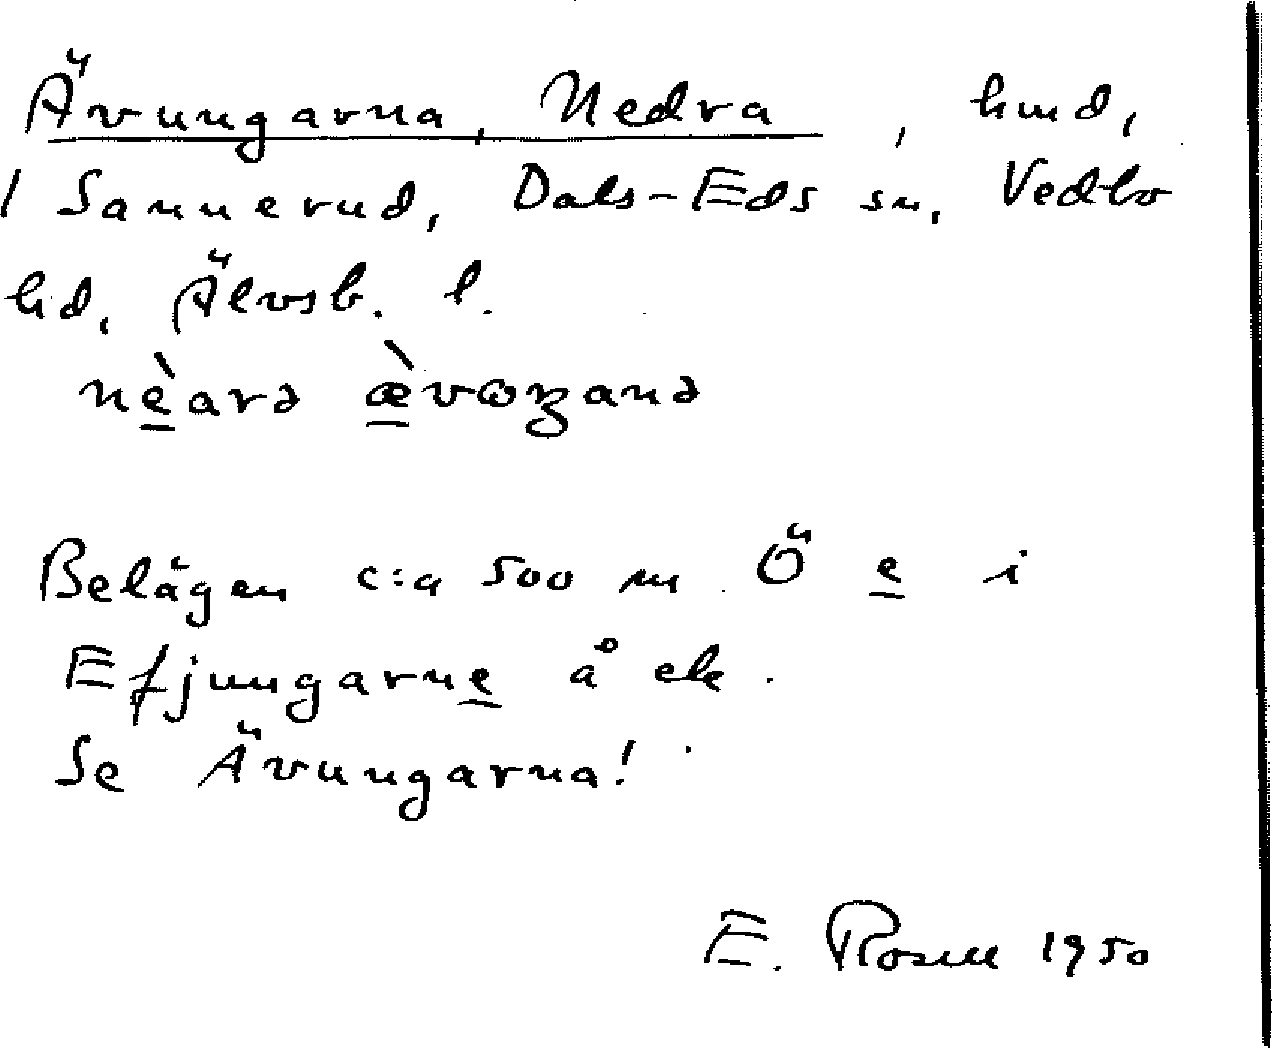 Ävungarna, Nedra, hmd,
1 Sannerud, Dals-Eds sn, Vedbo
hd, Älvsb. l.
nè̱arə æ̱̀vωŋanə
Belägen c:a 500 m Ö e̱ i
Efjungarne̱ å ek.
Se Ävungarna!
E. Rosell 1950